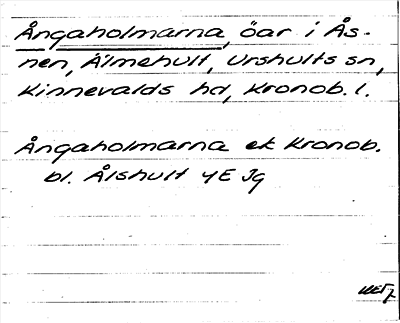 Ångaholmarna, öar i Ås-
nen, Älmehult, Urshults sn,
Kinnevalds hd, Kronob. l.
Ångaholmarna ek Kronob.
bl. Ålshult 4E Jg